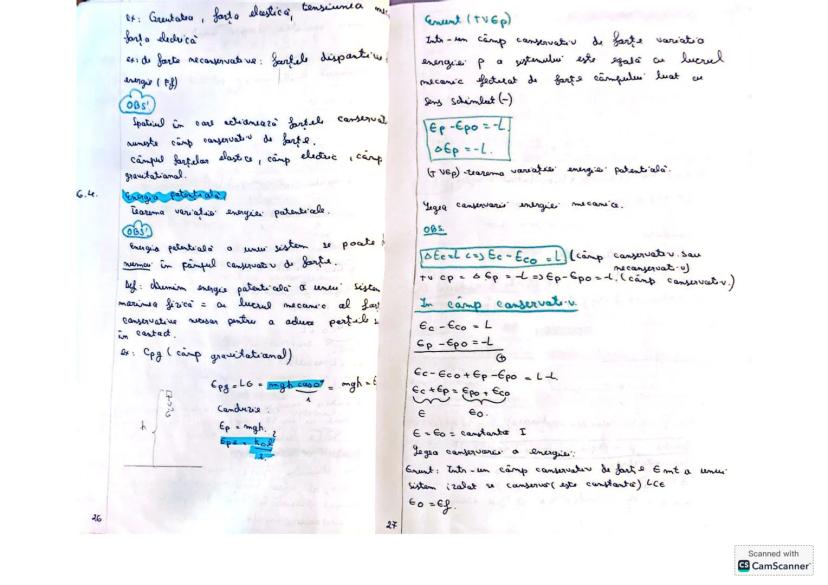 ex: Greutatea, forța elastică, tensiunea
forța electrică
ex: de forțe neconservative: forțele
energie (Ff)
OBS!
Spațiul în care acționează forțele conservat
numește câmp conservativ de forțe.
câmpul forțelor elastice, câmp electric, câmp
gravitational.
6.4.
Energia potențială
Teorema variației energiei potențiale.
OBS!
Energia potențială a unui sistem se poate
numai în câmpul conservativ de forțe.
Def: denumim energie potențială a unui sistem
mărimea fizică = cu lucrul mecanic al for
conservative necesar pentru a aduce părțile
în contact.
ex: Cpg (câmp gravitațional)
Epg = LG = mgh cos0° = mgh =
1
h
Concluzie:
Ep = mgh.
26
Enunt (TVEp)
Intr-un câmp conservativ de forțe variația
energiei p a sistemului este egală cu lucrul
mecanic efectuat de forțe câmpului luat cu
sens schimbat (-)
Ep - Epo = -L.
ΔEp = -L.
(TVEp) -teorema variației energiei potențială.
Legea conservarii energiei mecanice.
OBS.
ΔEc=L <=> Ec - Eco = L (câmp conservativ sau
neconservativ)
= ΔEp = -L => Ep-Epo = -L. (câmp conservativ.)
In câmp conservativ.
Ec - Eco = L
Ep - Epo = -L
+
Ec - Eco + Ep - Epo = L-L
Ec + Ep = Epo + Eco
E Eo.
E = Eo = constantă
Legea conservarii a energiei:
Enunt: Intr-un câmp conservativ de forțe Emt a unui
sistem izolat se conservă (este constantă) LCE
Eo = Ef.
27
Scanned with
CS CamScanner